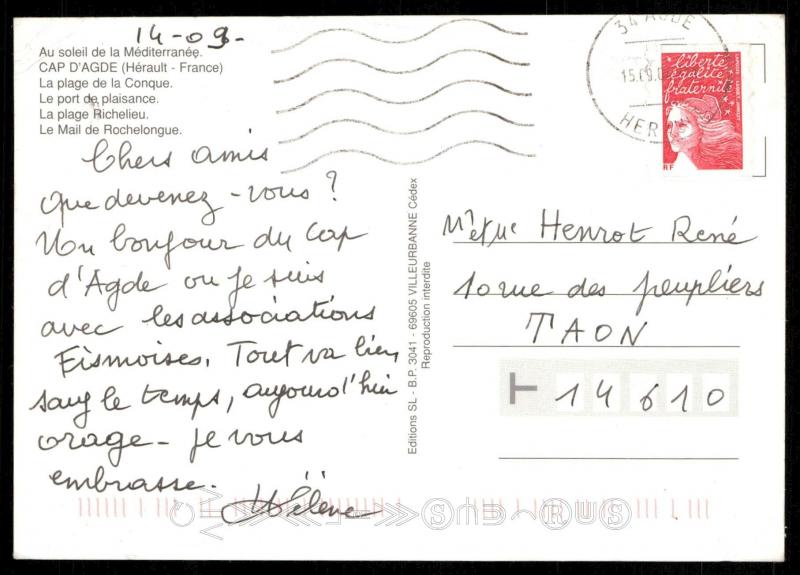 14-09-
Au soleil de la Méditerranée.
CAP D'AGDE (Hérault - France)
La plage de la Conque.
Le port de plaisance.
La plage Richelieu.
Le Mail de Rochelongue.
Chers amis
que devenez-vous ?
Un bonjour du Cap
d'Agde ou je suis
avec les associations
Eismoises. Tout va bien
sauf le temps, aujourd'hui
orage - je vous
embrasse.
Hélène
Editions SL - B.P. 3041 - 69605 VILLEURBANNE Cédex
Reproduction interdite
34 AGDE
15.09.0
HER
liberté
égalité
fraternité
RF
Mr et Me Henrot René
10 rue des peupliers
TAON
T 14610